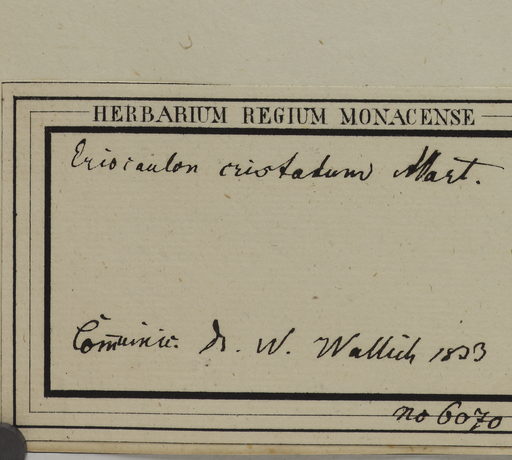 HERBARIUM REGIUM MONACENSE
Eriocaulon cristatum Mart.
Com̄unic. Dr. W. Wallich 1833
no 6070